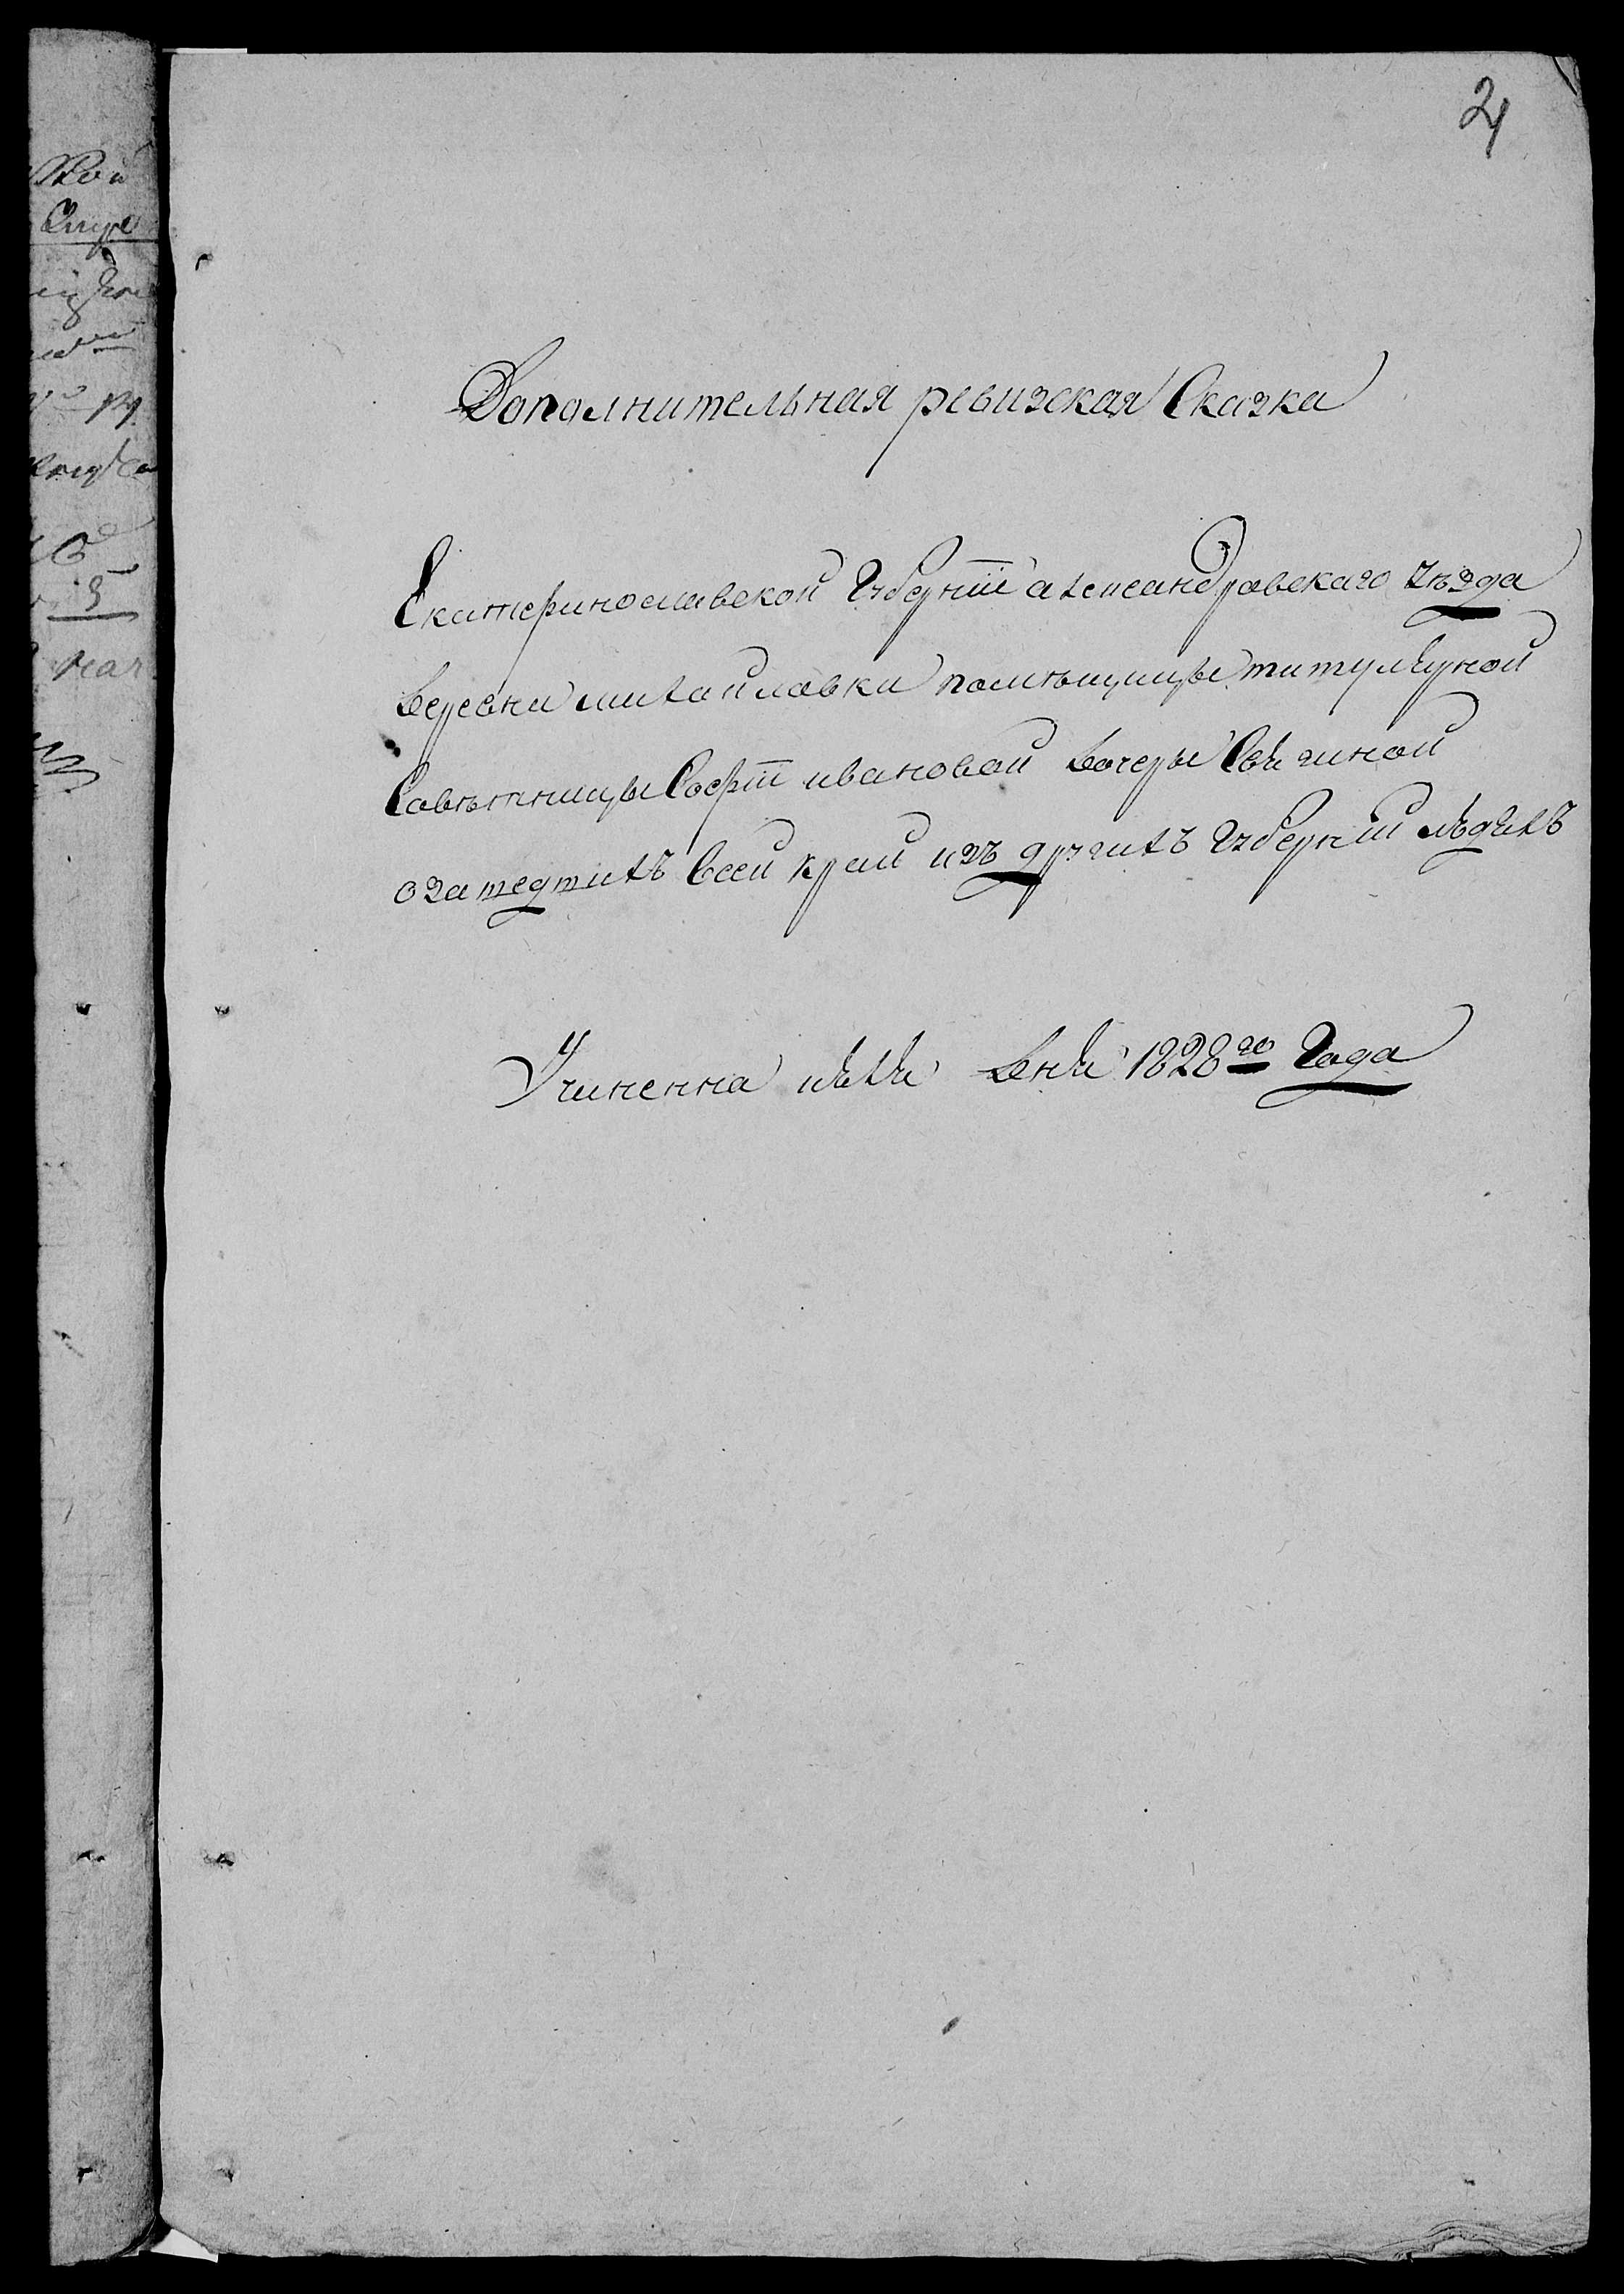 2
Дополнительная ревизская Сказка
Екатеринославской Губернии александровского уѣзда
деревни михайловки помѣщицы титулярной
Совѣтницы Софіи ивановой дочеры
озашедшихъ Всеи край изъ другихъ Губерній людяхъ
Учиненна июля дня 1828го Года